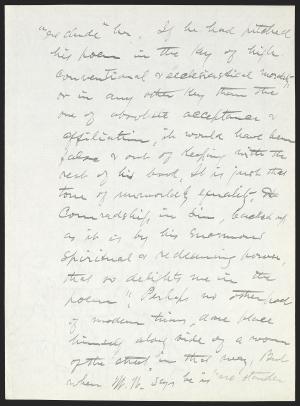 "exclude" her. If he had pitched
his poem in the key of high
conventional & ecclesiastical morality
or in any other key than the
one of absolute acceptance &
affiliation, it would have been
false & out of keeping with the
rest of his book. It is just that
tone of unworldly equality &
Comradeship in him, backed up
as it is by his enormous
spiritual & redeeming power,
that so delights me in the
poem". Perhaps no other poet
of modern times, dare place
himself along side of a woman
of the street in that way. But
when W.W. says he is "no stander